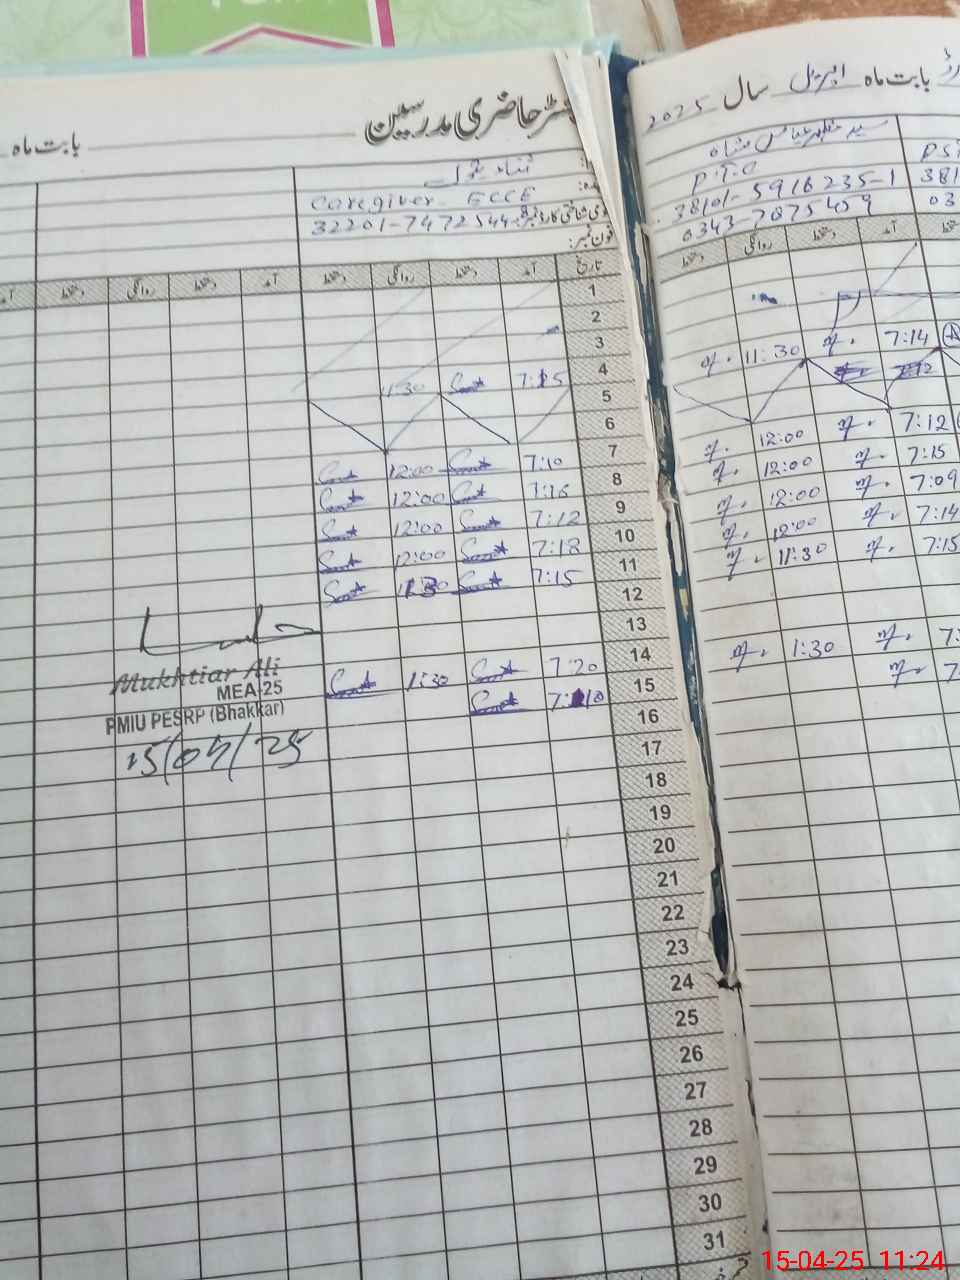 رجسٹر حاضری مدرسین
بابت ماہ
Caregiver ECCE
قومی شناختی کارڈ نمبر:
32201-7472544
فون نمبر:
تاریخ
آمد دستخط روانگی دستخط آمد دستخط روانگی دستخط
1
2
3
4 7:15 11:30
5
6
7 7:10 12:00
8 7:16 12:00
9 7:12 12:00
10 7:18 12:00
11 7:15
12
13
14 7:20 1:30
15 7:10
16
17
18
19
20
21
22
23
24
25
26
27
28
29
30
31
Mukhtiar Ali
MEA-25
PMIU PESRP (Bhakkar)
15/04/25
بابت ماہ اپریل سال 2025
P.T.C
38101-5916235-1
0343-7875459
PST
381
03
آمد دستخط روانگی دستخط
7:14 11:30
7:12 12:00
7:15 12:00
7:09 12:00
7:14 12:00
7:15 11:30
1:30
15-04-25 11:24